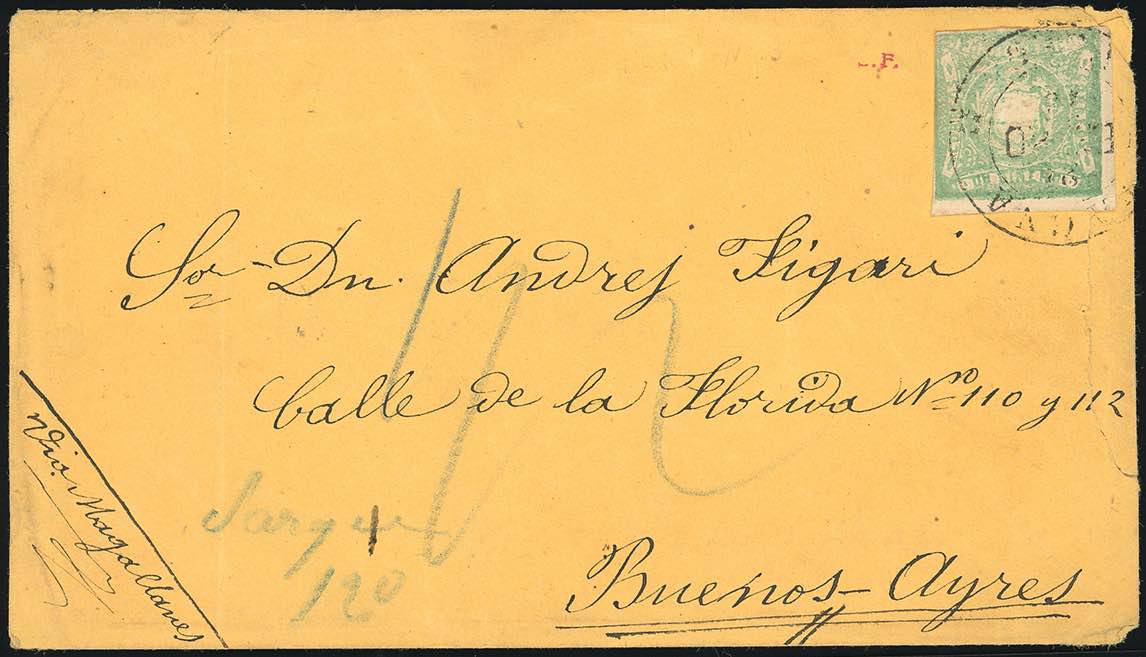 .F.
Sor Dn. Andres Figari
Calle de la Florida Nro 110 y 112
Buenos-Ayres
Via Magallanes
12
120